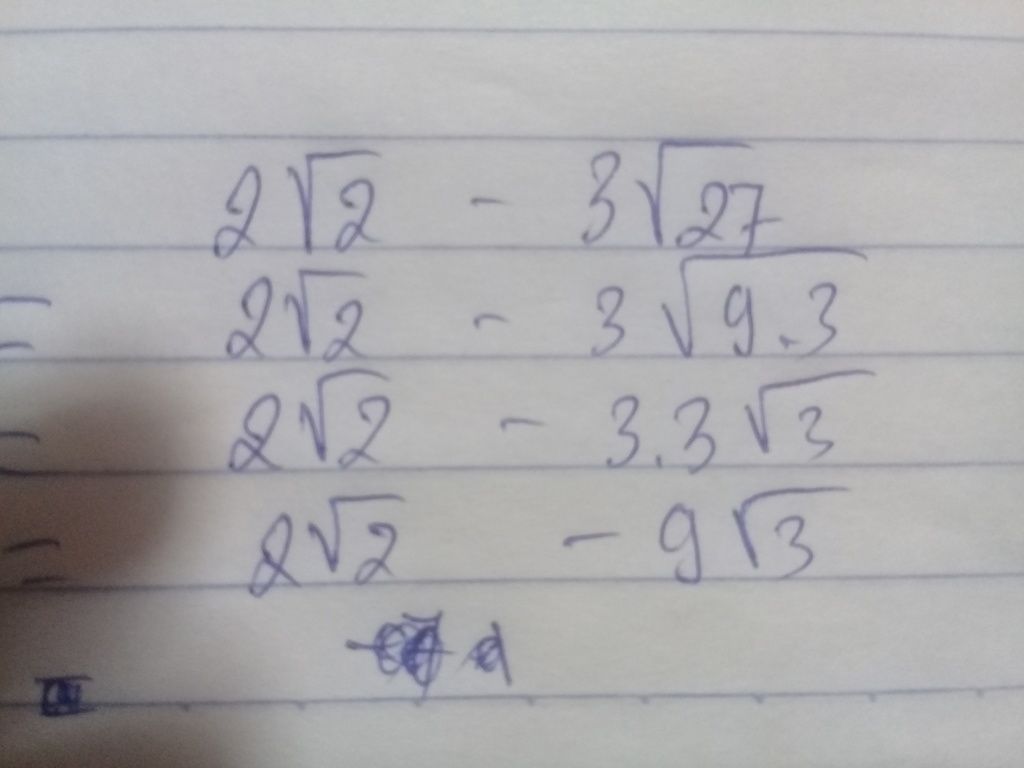 2√2 - 3√27
= 2√2 - 3√9.3
= 2√2 - 3.3√3
= 2√2 - 9√3